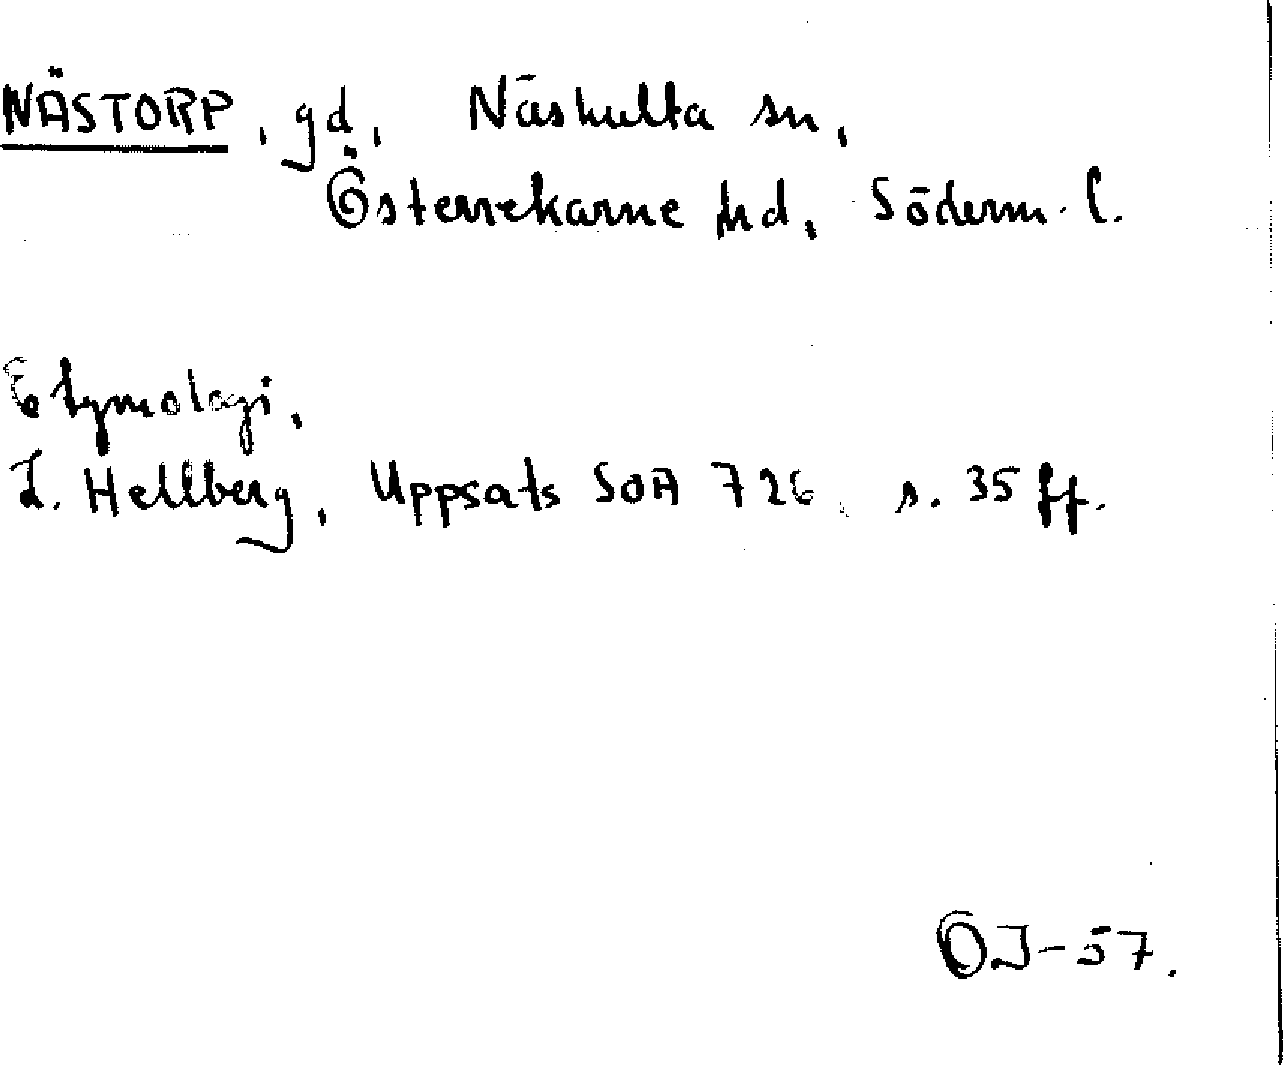 NÄSTORP, gd, Näshulta sn,
Österrekarne hd, Söderm. l.
Etymologi,
L. Hellberg, Uppsats SOA 726, s. 35 ff.
OJ-57.